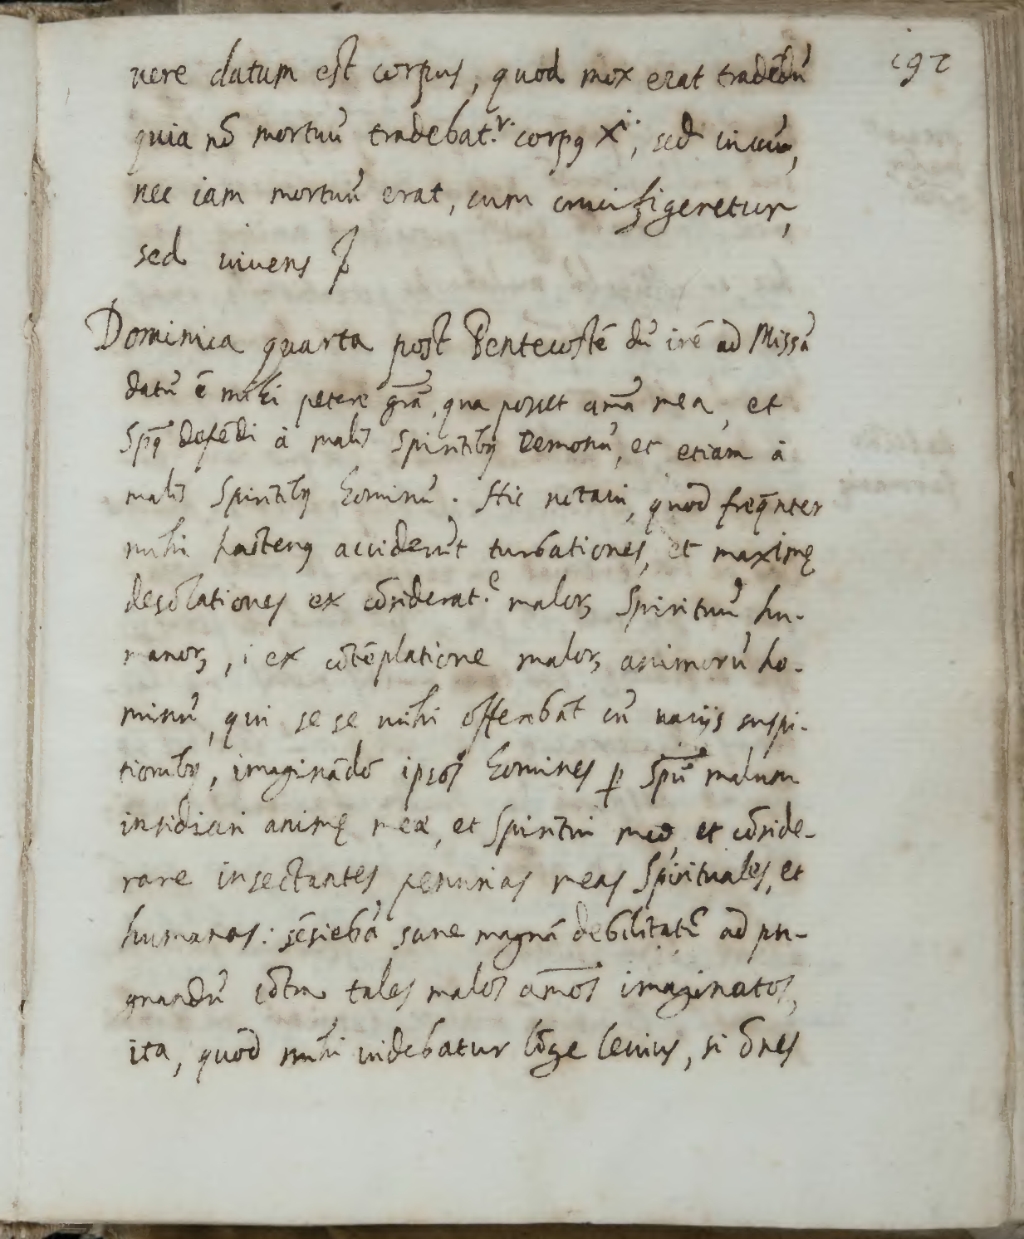 192
uere datum est corpus, quod mox erat tradēdū
quia nō mortuū tradebat.r corpꝯ Xi, sed uiuū,
nec iam mortuū erat, cum crucifigeretur,
sed uiuens
Dominica quarta post Pentecostē dū irē ad Missā
datū ē mihi petere grā̄, qua posset aīa mea, et
Spūs defēdi à malis Spiritibꝯ Demonū, et etiam à
malis Spiritibꝯ hominū. Hic notaui, quod freq̄nter
mihi hactenꝯ acciderūt turbationes, et maximę
desōlationes ex cōsiderat.e maloꝝ Spirituū hu-
manoꝝ, i ex cōtēplatione maloꝝ animorū ho-
minū, qui se se mihi offerebāt cū uarijs suspi-
tionibꝯ, imaginādo ipsos homines ꝑ Spūm malum
insidiari animę meæ, et Spiritui meo, et cōside-
rare insectantes penurias meas Spirituales, et
humanas: sēsiebā sane magnā debilitatē ad pu-
gnandū cōtra tales malos aīmos imaginatos,
ita, quod mihi uidebatur lōge leuius, si ōnes